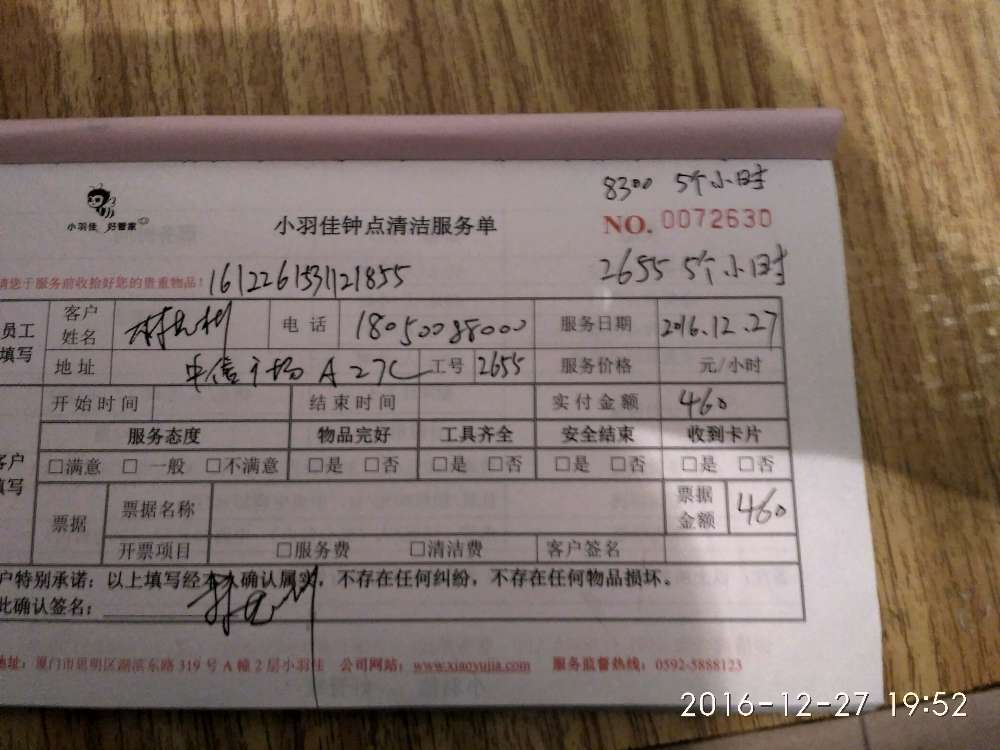 8300 5个小时
小羽佳 好管家
小羽佳钟点清洁服务单
NO. 0072630
2655 5个小时
请您于服务前收拾好您的贵重物品!
1612261531121855
员工填写
客户姓名 电话 18050088000 服务日期 2016.12.27
地址 中信广场A27C 工号 2655 服务价格 元/小时
开始时间 结束时间 实付金额 460
客户填写
服务态度 物品完好 工具齐全 安全结束 收到卡片
□满意 □一般 □不满意 □是 □否 □是 □否 □是 □否 □是 □否
票据 票据名称 票据金额 460
开票项目 □服务费 □清洁费 客户签名
户特别承诺:以上填写经本人确认属实,不存在任何纠纷,不存在任何物品损坏。
此确认签名:
地址:厦门市思明区湖滨东路319号A幢2层小羽佳 公司网站:www.xiaoyujia.com 服务监督热线:0592-5888123
2016-12-27 19:52